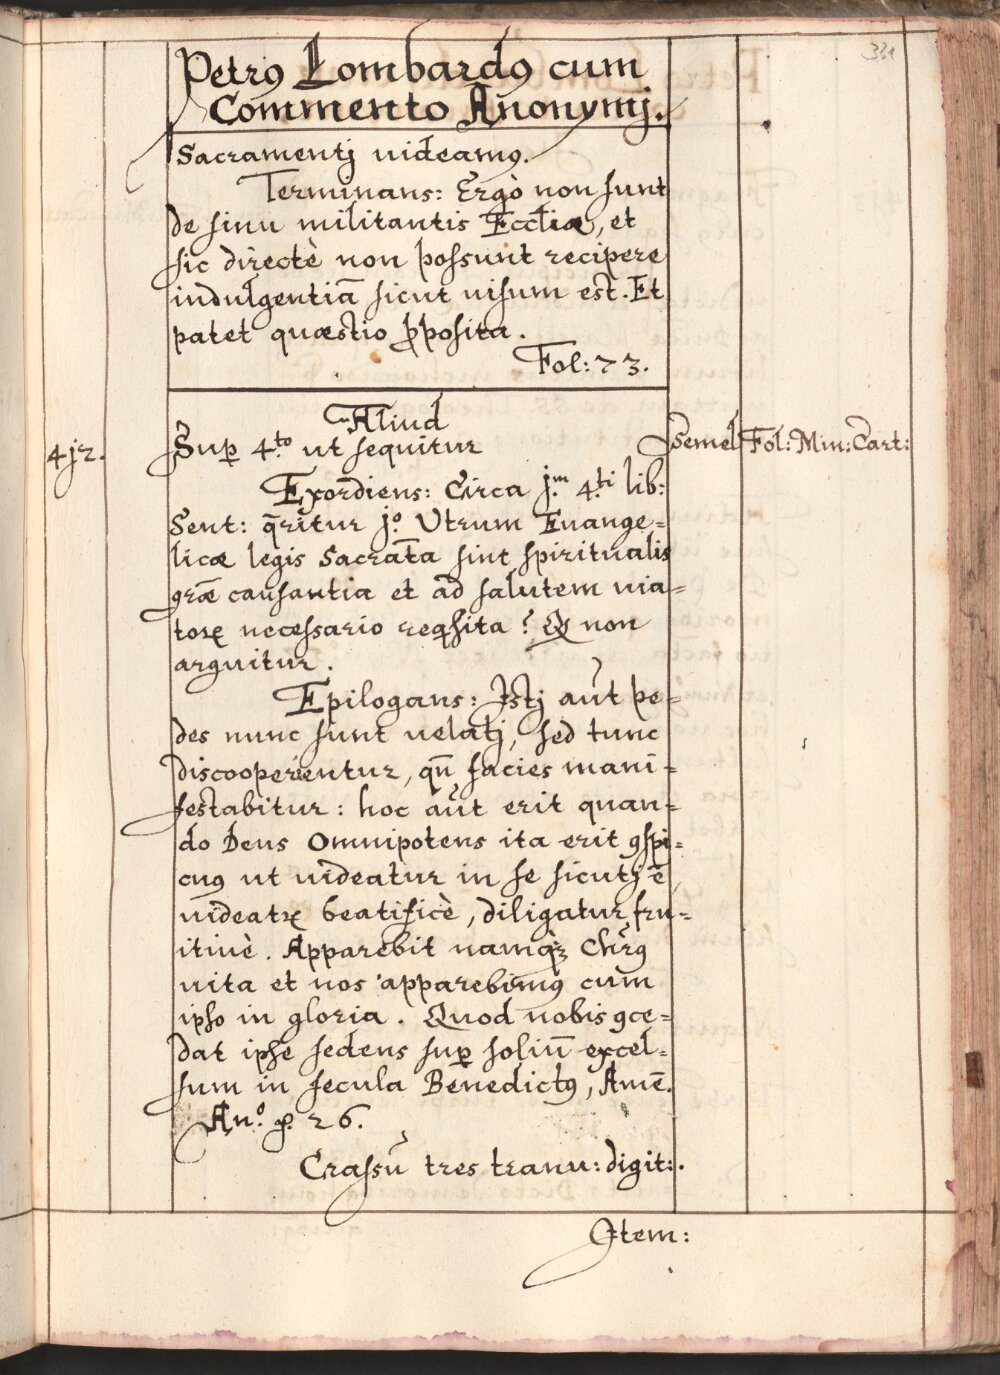 381
Petrꝰ Lombardꝰ cum
Commento Anonymj.
Sacramentj uideamꝰ.
Terminans: Ergò non sunt
de sinu militantis Eccliæ, et
sic directè non possunt recipere
indulgentiā sicut uisum est. Et
patet quæstio ꝓposita.
Fol: 73.
Aliud
4j2. Suꝑ 4.to ut sequitur Semel Fol: Min: Cart:
Exordiens: Circa j.m 4.ti lib:
Sent: q̄ritur j.o Utrum Euange=
licæ legis Sacram̄ta sint spiritualis
grāe causantia et ad salutem uia=
toꝝ necessario reqsita? Qꝫ non
arguitur.
Epilogans: Istj aūt pe=
des nunc sunt uelatj, sed tunc
discooperientur, qn̄ facies mani=
festabitur: hoc aūt erit quan=
do Deus Omnipotens ita erit ꝯspi=
cuꝰ ut uideatur in se sicutj ē
uideatꝝ beatificè, diligatur fru=
itiuè. Apparebit namqꝫ Chrꝰ
uita et nos apparebimꝰ cum
ipso in gloria. Quod nobis ꝯce=
dat ipse sedens suꝑ soliū excel=
sum in secula Benedictꝰ, Amē.
An.o p. 26.
Crassū tres tranu: digit:.
Item: